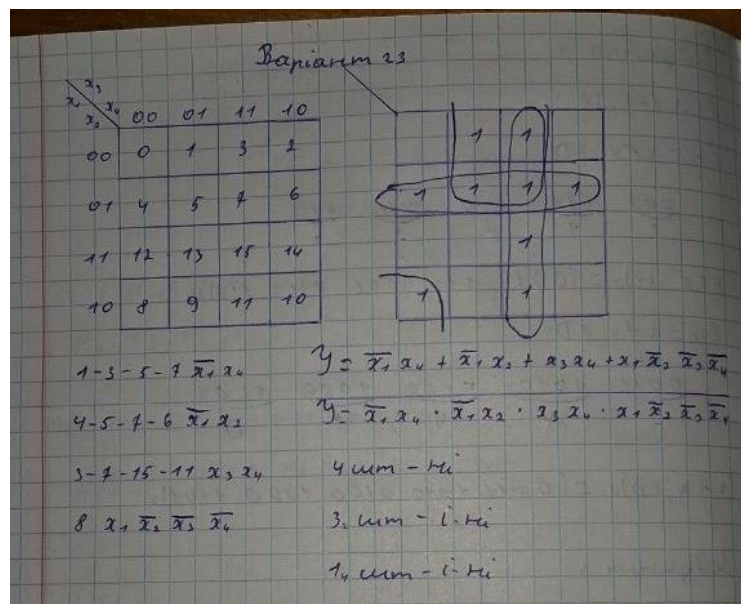 Варіант 23
x₃
x₁ x₄
x₂ 00 01 11 10
00 0 1 3 2
01 4 5 7 6
11 12 13 15 14
10 8 9 11 10
1 1
1 1 1 1
1
1 1
1-3-5-7 x̅₁ x₄
4-5-7-6 x̅₁ x₂
3-7-15-11 x₃ x₄
8 x₁ x̅₂ x̅₃ x̅₄
Y = x̅₁ x₄ + x̅₁ x₂ + x₃ x₄ + x₁ x̅₂ x̅₃ x̅₄
Y = x̅₁ x₄ · x̅₁ x₂ · x₃ x₄ · x₁ x̅₂ x̅₃ x̅₄
4 шт - ні
3. шт - і-ні
1₄ шт - і-ні